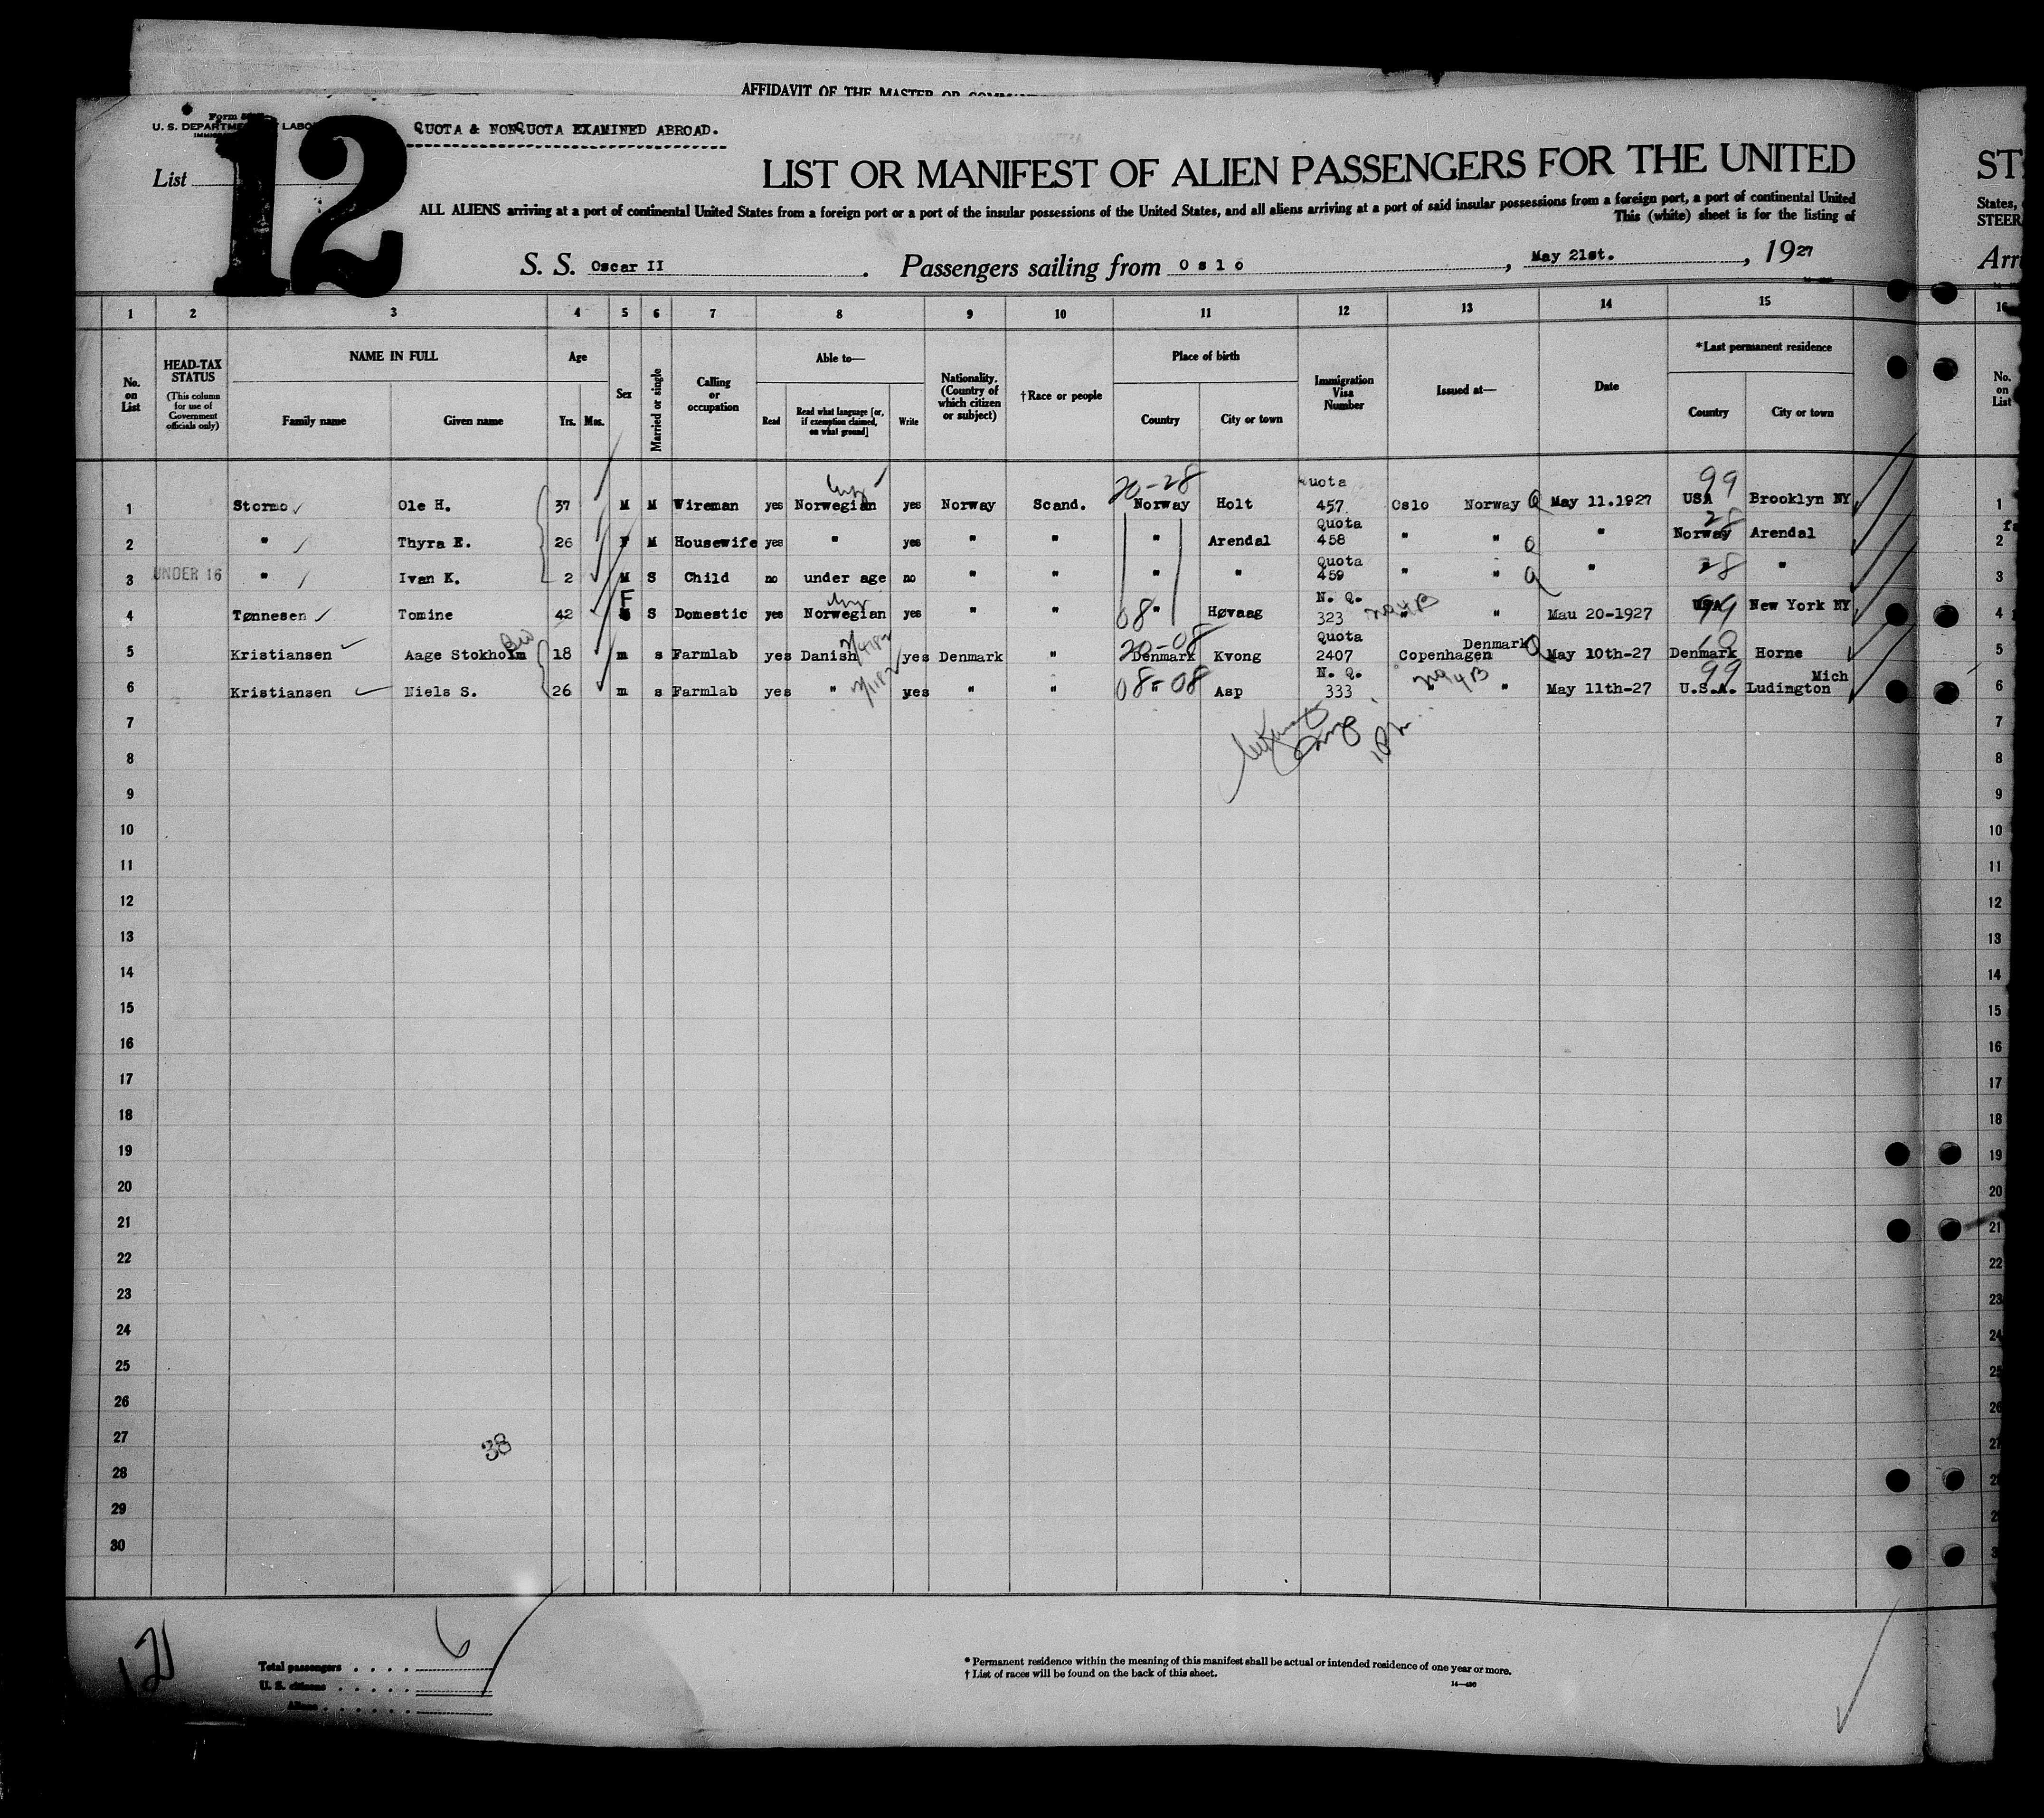 AFFIDAVIT OF THE MASTER OR
Form
U. S. DEPARTMENT LABOR
12
QUOTA & NONQUOTA EXAMINED ABROAD.
List
LIST OR MANIFEST OF ALIEN PASSENGERS FOR THE UNITED
ALL ALIENS arriving at a port of continental United States from a foreign port or a port of the insular possessions of the United States, and all aliens arriving at a port of said insular possessions from a foreign port, a port of continental United
This (white) sheet is for the listing of
S. S. Oscar II . Passengers sailing from Oslo , May 21st. , 1927
ST
States,
STEER
Arr
1 2 3 4 5 6 7 8 9 10 11 12 13 14 15 16
No. on List
HEAD-TAX STATUS (This column for use of Government officials only)
NAME IN FULL
Family name Given name
Age
Yrs. Mos.
Sex
Married or single
Calling or occupation
Able to—
Read Read what language [or, if exemption claimed, on what ground] Write
Nationality. (Country of which citizen or subject)
†Race or people
Place of birth
Country City or town
Immigration Visa Number
Issued at—
Date
*Last permanent residence
Country City or town
No. on List
1 Stormo Ole H. 37 M M Wireman yes Norwegian yes Norway Scand. 20-28 Norway Holt Quota 457 Oslo Norway Q May 11.1927 99 USA Brooklyn NY 1
2 " Thyra E. 26 F M Housewife yes " yes " " " Arendal Quota 458 " " Q " 28 Norway Arendal 2
3 UNDER 16 " Ivan K. 2 M S Child no under age no " " " " Quota 459 " " Q " 28 " 3
4 Tønnesen Tomine 42 F S Domestic yes Norwegian yes " " 08 " Høvaag N. Q. 323 " " Mau 20-1927 USA 99 New York NY 4
5 Kristiansen Aage Stokholm 18 m s Farmlab yes Danish yes Denmark " 20-08 Denmark Kvong Quota 2407 Copenhagen Denmark Q May 10th-27 Denmark Horne 5
6 Kristiansen Niels S. 26 m s Farmlab yes " yes " " 08-08 " Asp N. Q. 333 " May 11th-27 99 U.S.A. Ludington Mich 6
7 7
8 8
9 9
10 10
11 11
12 12
13 13
14 14
15 15
16 16
17 17
18 18
19 19
20 20
21 21
22 22
23 23
24 24
25 25
26 26
27 38
28
29
30
121
Total passengers . . . . 6
U. S. citizens . . . . .
Aliens . . . . . .
* Permanent residence within the meaning of this manifest shall be actual or intended residence of one year or more.
† List of races will be found on the back of this sheet.